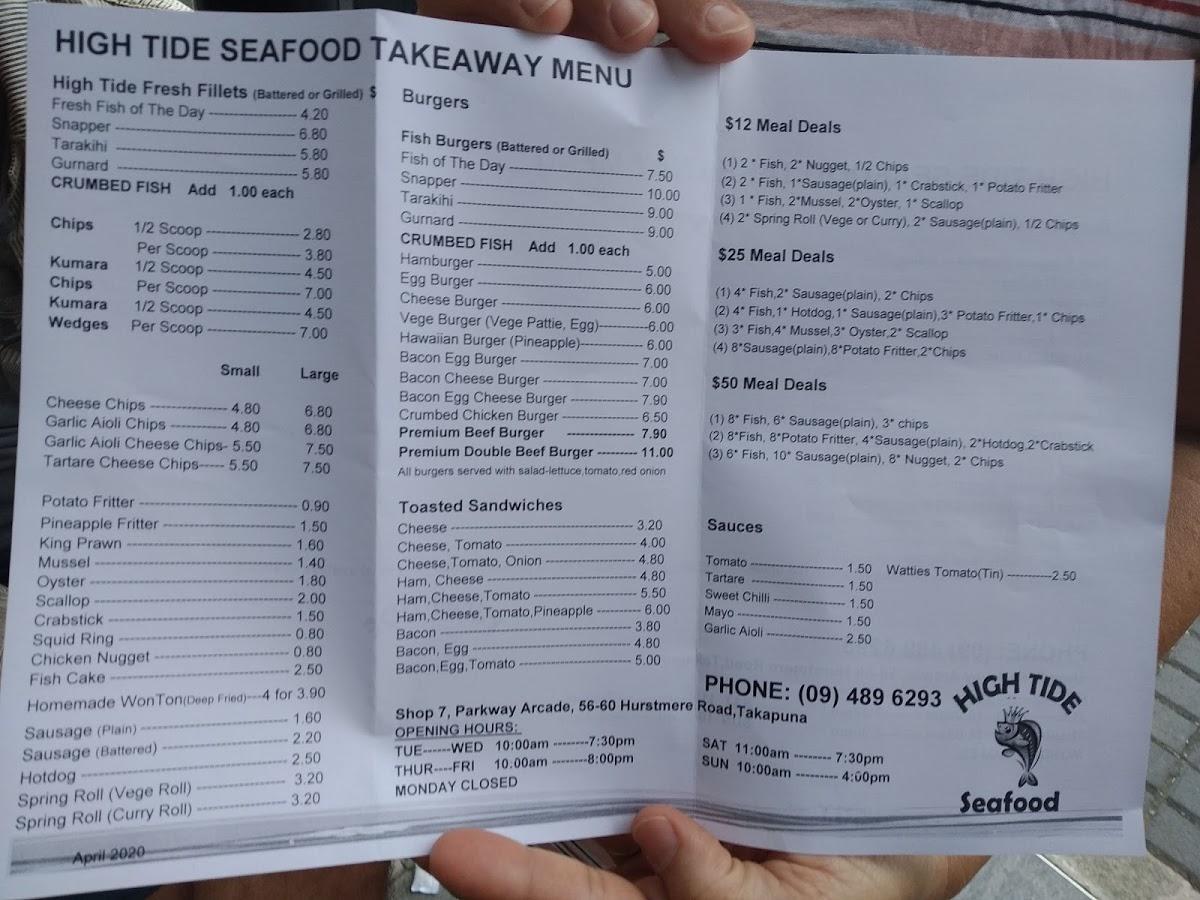 HIGH TIDE SEAFOOD TAKEAWAY MENU
High Tide Fresh Fillets (Battered or Grilled) $
Fresh Fish of The Day ---------------- 4.20
Snapper ---------------- 6.80
Tarakihi ---------------- 5.80
Gurnard ---------------- 5.80
CRUMBED FISH Add 1.00 each
Chips 1/2 Scoop ---------------- 2.80
Per Scoop ---------------- 3.80
Kumara 1/2 Scoop ---------------- 4.50
Chips Per Scoop ---------------- 7.00
Kumara 1/2 Scoop ---------------- 4.50
Wedges Per Scoop ---------------- 7.00
Small Large
Cheese Chips ---------------- 4.80 6.80
Garlic Aioli Chips ----------- 4.80 6.80
Garlic Aioli Cheese Chips- 5.50 7.50
Tartare Cheese Chips----- 5.50 7.50
Potato Fritter ---------------- 0.90
Pineapple Fritter ---------------- 1.50
King Prawn ---------------- 1.60
Mussel ---------------- 1.40
Oyster ---------------- 1.80
Scallop ---------------- 2.00
Crabstick ---------------- 1.50
Squid Ring ---------------- 0.80
Chicken Nugget ---------------- 0.80
Fish Cake ---------------- 2.50
Homemade WonTon(Deep Fried)---4 for 3.90
Sausage (Plain) ---------------- 1.60
Sausage (Battered) ---------------- 2.20
Hotdog ---------------- 2.50
Spring Roll (Vege Roll) ---------------- 3.20
Spring Roll (Curry Roll) ---------------- 3.20
April 2020
Burgers
Fish Burgers (Battered or Grilled) $
Fish of The Day ---------------- 7.50
Snapper ---------------- 10.00
Tarakihi ---------------- 9.00
Gurnard ---------------- 9.00
CRUMBED FISH Add 1.00 each
Hamburger ---------------- 5.00
Egg Burger ---------------- 6.00
Cheese Burger ---------------- 6.00
Vege Burger (Vege Pattie, Egg)----------6.00
Hawaiian Burger (Pineapple)------------- 6.00
Bacon Egg Burger ---------------- 7.00
Bacon Cheese Burger ---------------- 7.00
Bacon Egg Cheese Burger ---------------- 7.90
Crumbed Chicken Burger ---------------- 6.50
Premium Beef Burger ---------------- 7.90
Premium Double Beef Burger --------- 11.00
All burgers served with salad-lettuce,tomato,red onion
Toasted Sandwiches
Cheese ---------------- 3.20
Cheese, Tomato ---------------- 4.00
Cheese,Tomato, Onion ---------------- 4.80
Ham, Cheese ---------------- 4.80
Ham,Cheese,Tomato ---------------- 5.50
Ham,Cheese,Tomato,Pineapple ---------- 6.00
Bacon ---------------- 3.80
Bacon, Egg ---------------- 4.80
Bacon,Egg,Tomato ---------------- 5.00
$12 Meal Deals
(1) 2 * Fish, 2* Nugget, 1/2 Chips
(2) 2 * Fish, 1*Sausage(plain), 1* Crabstick, 1* Potato Fritter
(3) 1 * Fish, 2*Mussel, 2*Oyster, 1* Scallop
(4) 2* Spring Roll (Vege or Curry), 2* Sausage(plain), 1/2 Chips
$25 Meal Deals
(1) 4* Fish,2* Sausage(plain), 2* Chips
(2) 4* Fish,1* Hotdog,1* Sausage(plain),3* Potato Fritter,1* Chips
(3) 3* Fish,4* Mussel,3* Oyster,2* Scallop
(4) 8*Sausage(plain),8*Potato Fritter,2*Chips
$50 Meal Deals
(1) 8* Fish, 6* Sausage(plain), 3* chips
(2) 8*Fish, 8*Potato Fritter, 4*Sausage(plain), 2*Hotdog,2*Crabstick
(3) 6* Fish, 10* Sausage(plain), 8* Nugget, 2* Chips
Sauces
Tomato ---------------- 1.50 Watties Tomato(Tin) ----------2.50
Tartare ---------------- 1.50
Sweet Chilli ---------------- 1.50
Mayo ---------------- 1.50
Garlic Aioli ---------------- 2.50
PHONE: (09) 489 6293
Shop 7, Parkway Arcade, 56-60 Hurstmere Road,Takapuna
OPENING HOURS:
TUE------WED 10:00am --------7:30pm
THUR----FRI 10.00am --------8:00pm
MONDAY CLOSED
SAT 11:00am -------- 7:30pm
SUN 10:00am --------- 4:00pm
HIGH TIDE
Seafood